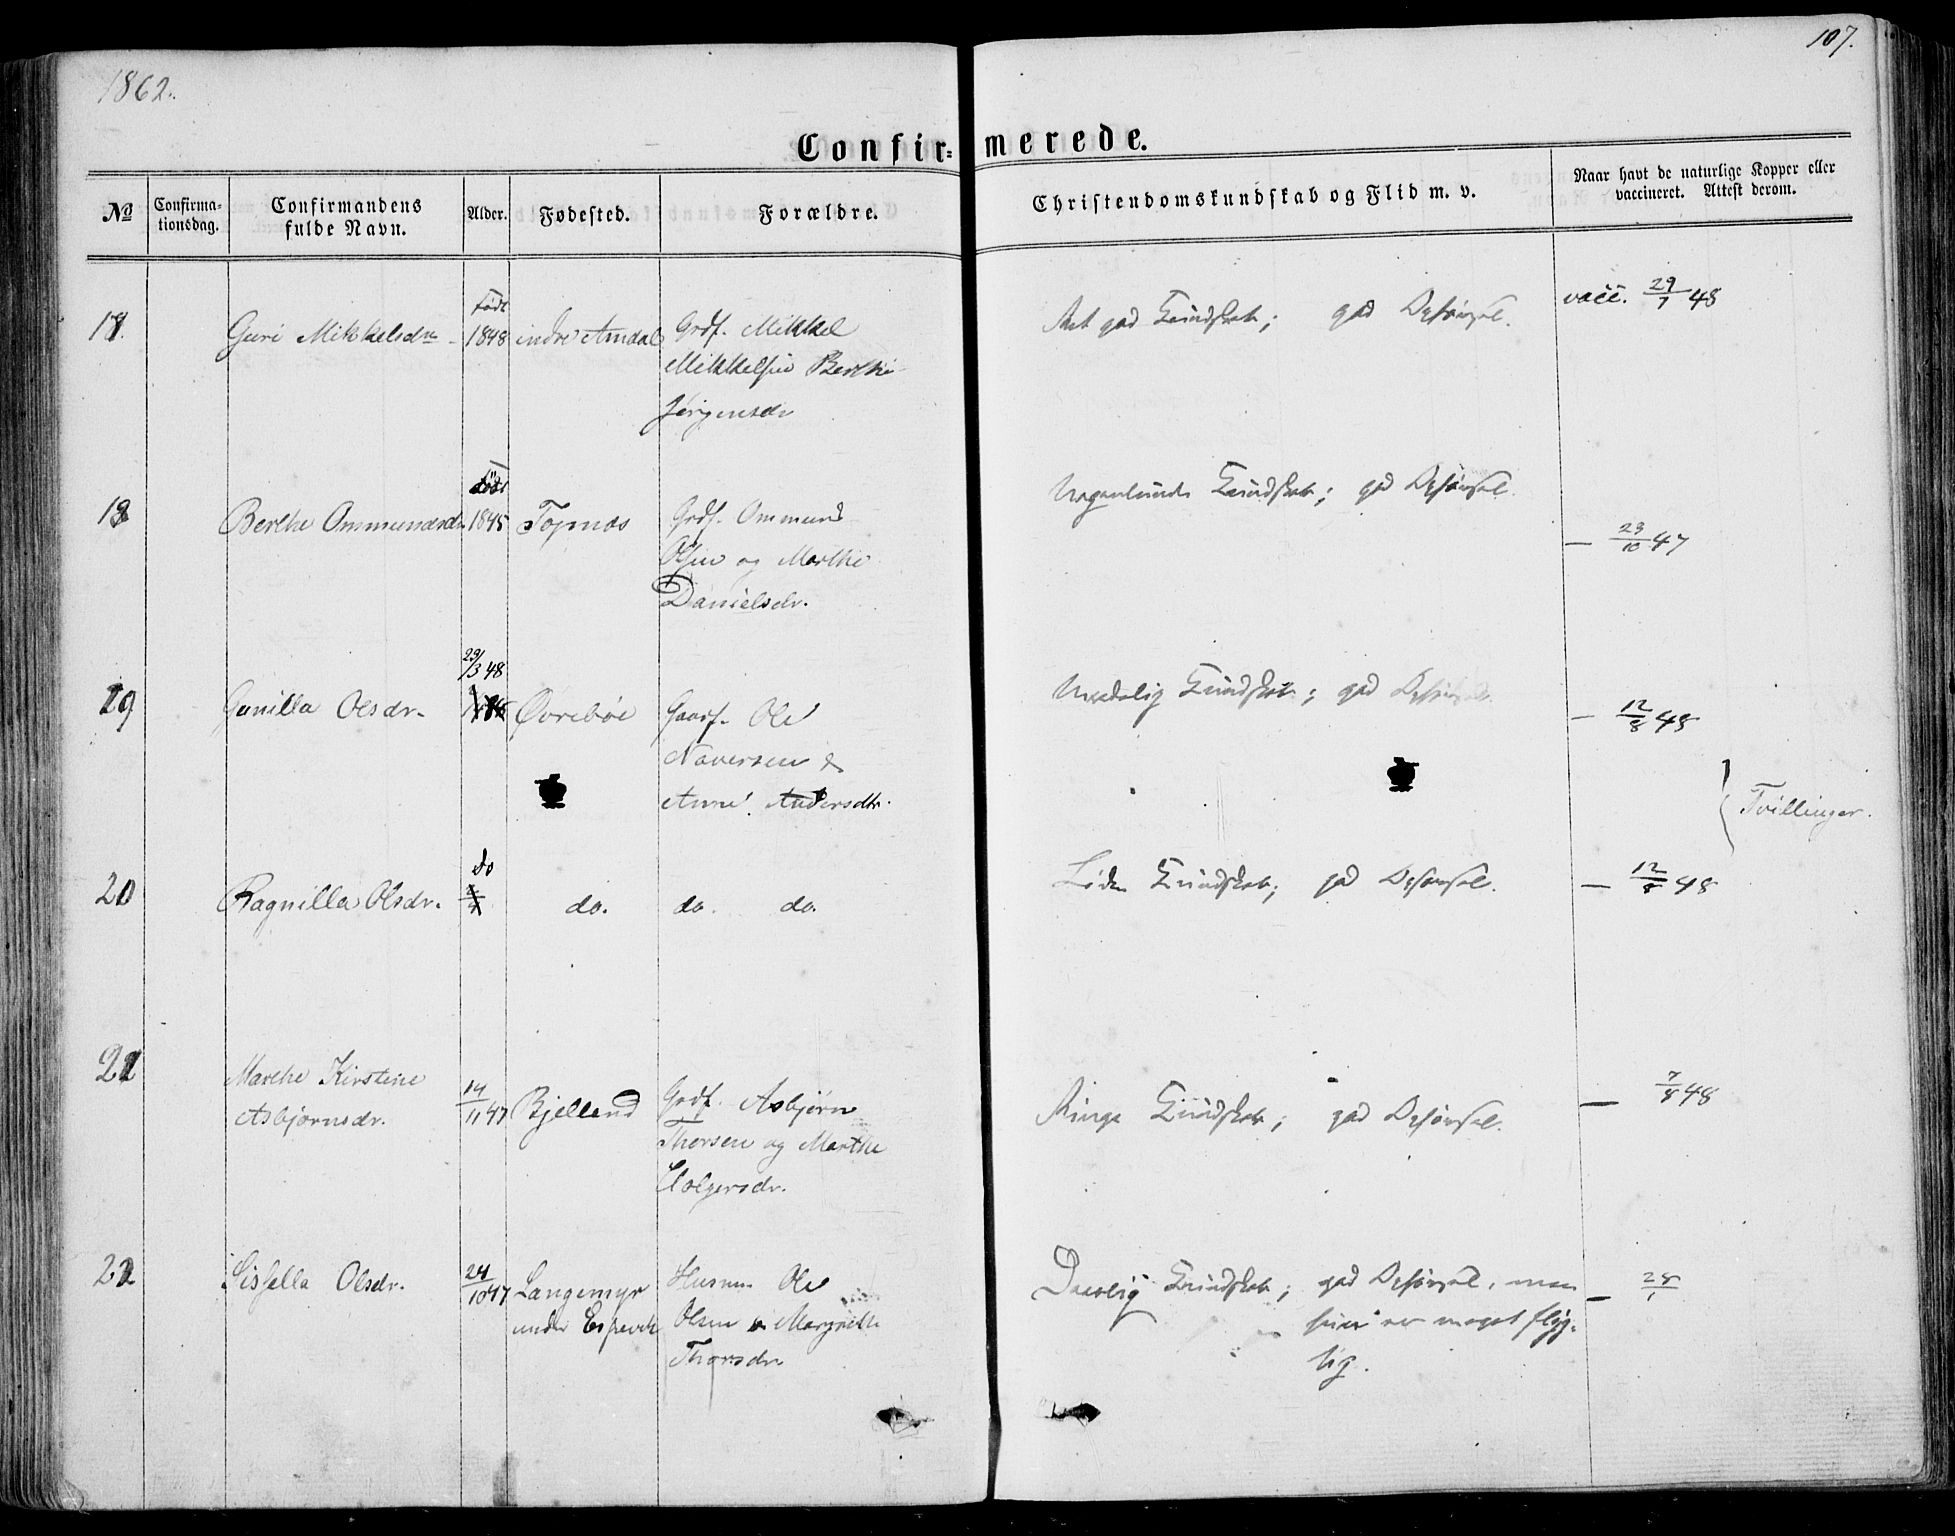 1862.
107.
Confir=merede.
No
Confirma-
tionsdag.
Confirmandens
fulde Navn.
Alder.
Fødested.
Forældre.
Christendomskundskab og Flid m. v.
Naar havt de naturlige Kopper eller
vaccineret. Attest derom.
17.
Guri Mikkelsdr
født
1848
indre Amdal
Grdf. Mikkel
Mikkelsen Berthe
Jørgensdr
god Kundskab; god Opførsel.
vacc. 29/7 48
18
Berthe Ommundsdr
født
1845
Topnæs
Grdf. Ommund
Olsen og Marthe
Danielsdr.
Kundskab; god Opførsel.
— 23/10 47
19
Gunilla Olsdr.
29/3 48
Øvrebøe
Gaardf. Ole
Naversen &
Anne Andersdtr.
Maadelig Kundskab; god Opførsel.
— 12/8 48
} Tvillinger.
20
Ragnilla Olsdr.
do
do.
do. do.
Liden Kundskab; god Opførsel.
— 12/8 48
21
Marthe Kirstine
Asbjørnsdr.
14/11 47
Bjelland
Grdf. Asbjørn
Thorsen og Marthe
Holgersdr.
Ringe Kundskab; god Opførsel.
— 7/8 48
22
Sissella Olsdr.
24/10 47
Langemyr
under Espevik
Husm. Ole
Olsen & Margrethe
Thorsdr
Daarlig Kundskab; god Opførsel, men
hun er meget